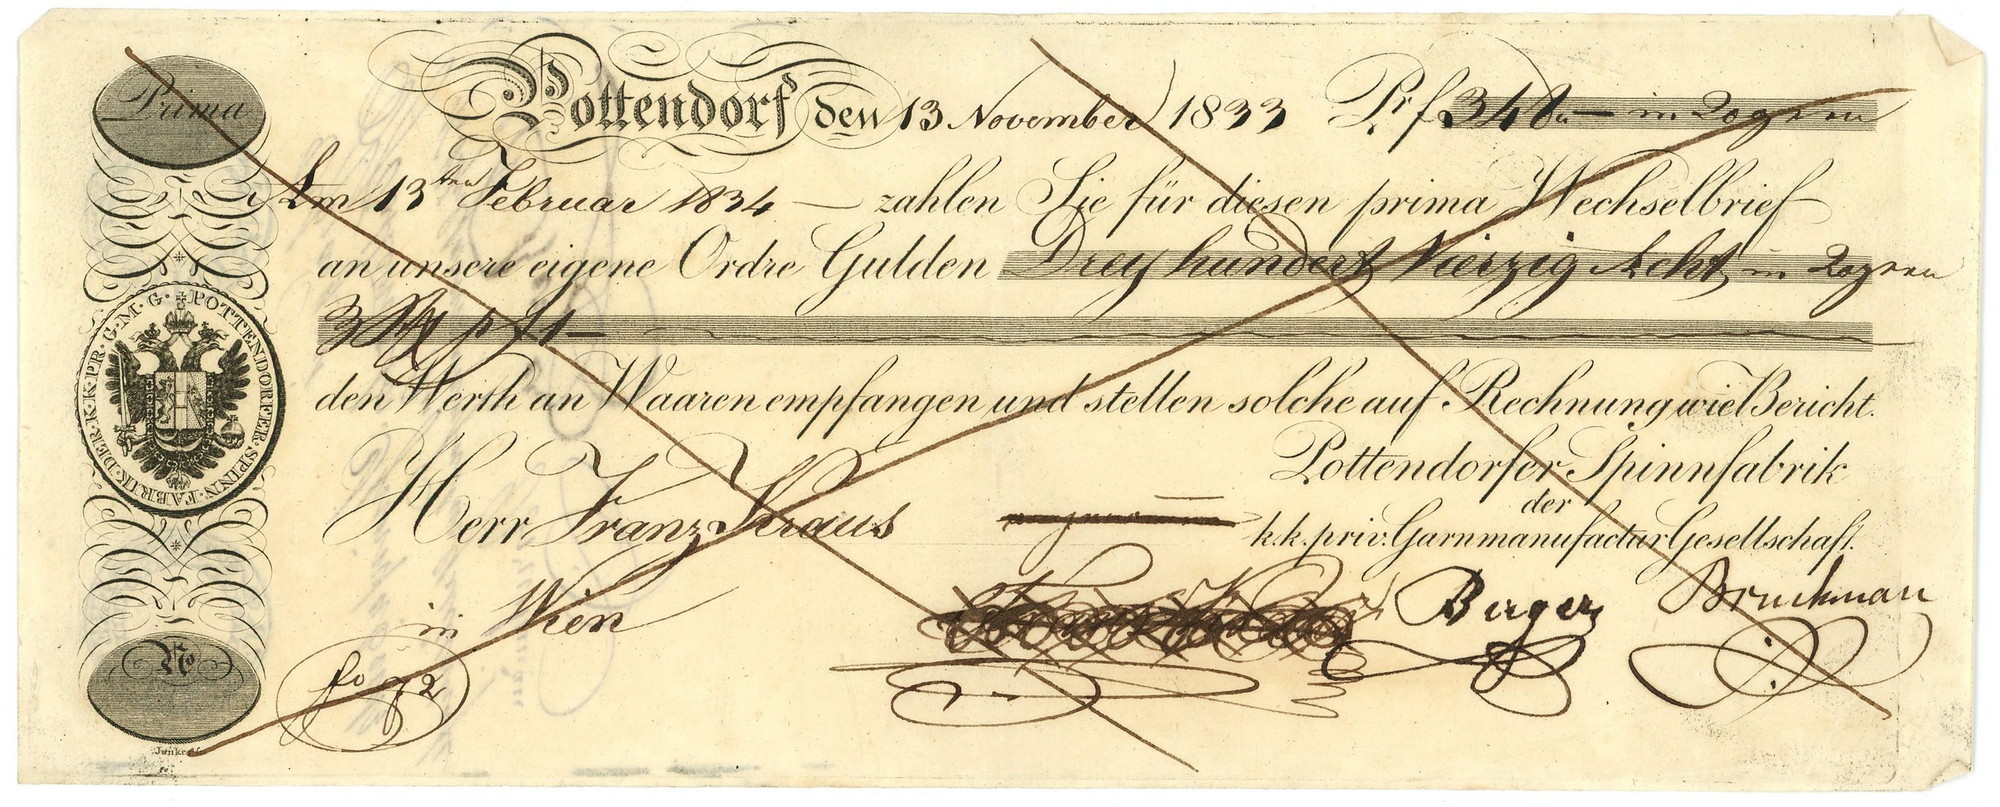 Prima
Pottendorf den 13 November 1833 Pr f 348 — in 20gren
Am 13ten Februar 1834 — zahlen Sie für diesen prima Wechselbrief
an unsere eigene Ordre Gulden Dreyhundert Vierzig Acht in 20gren
3
den Werth an Waaren empfangen und stellen solche auf Rechnung wie Bericht.
Pottendorfer Spinnfabrik
der
k.k. priv. Garnmanufactur Gesellschaft.
Herr Franz Kraus
in Wien
Berger Bruckman
POTTENDORFER · SPINN · FABRIK · DER · K · K · PR · G · M · G ·
No
fo 72